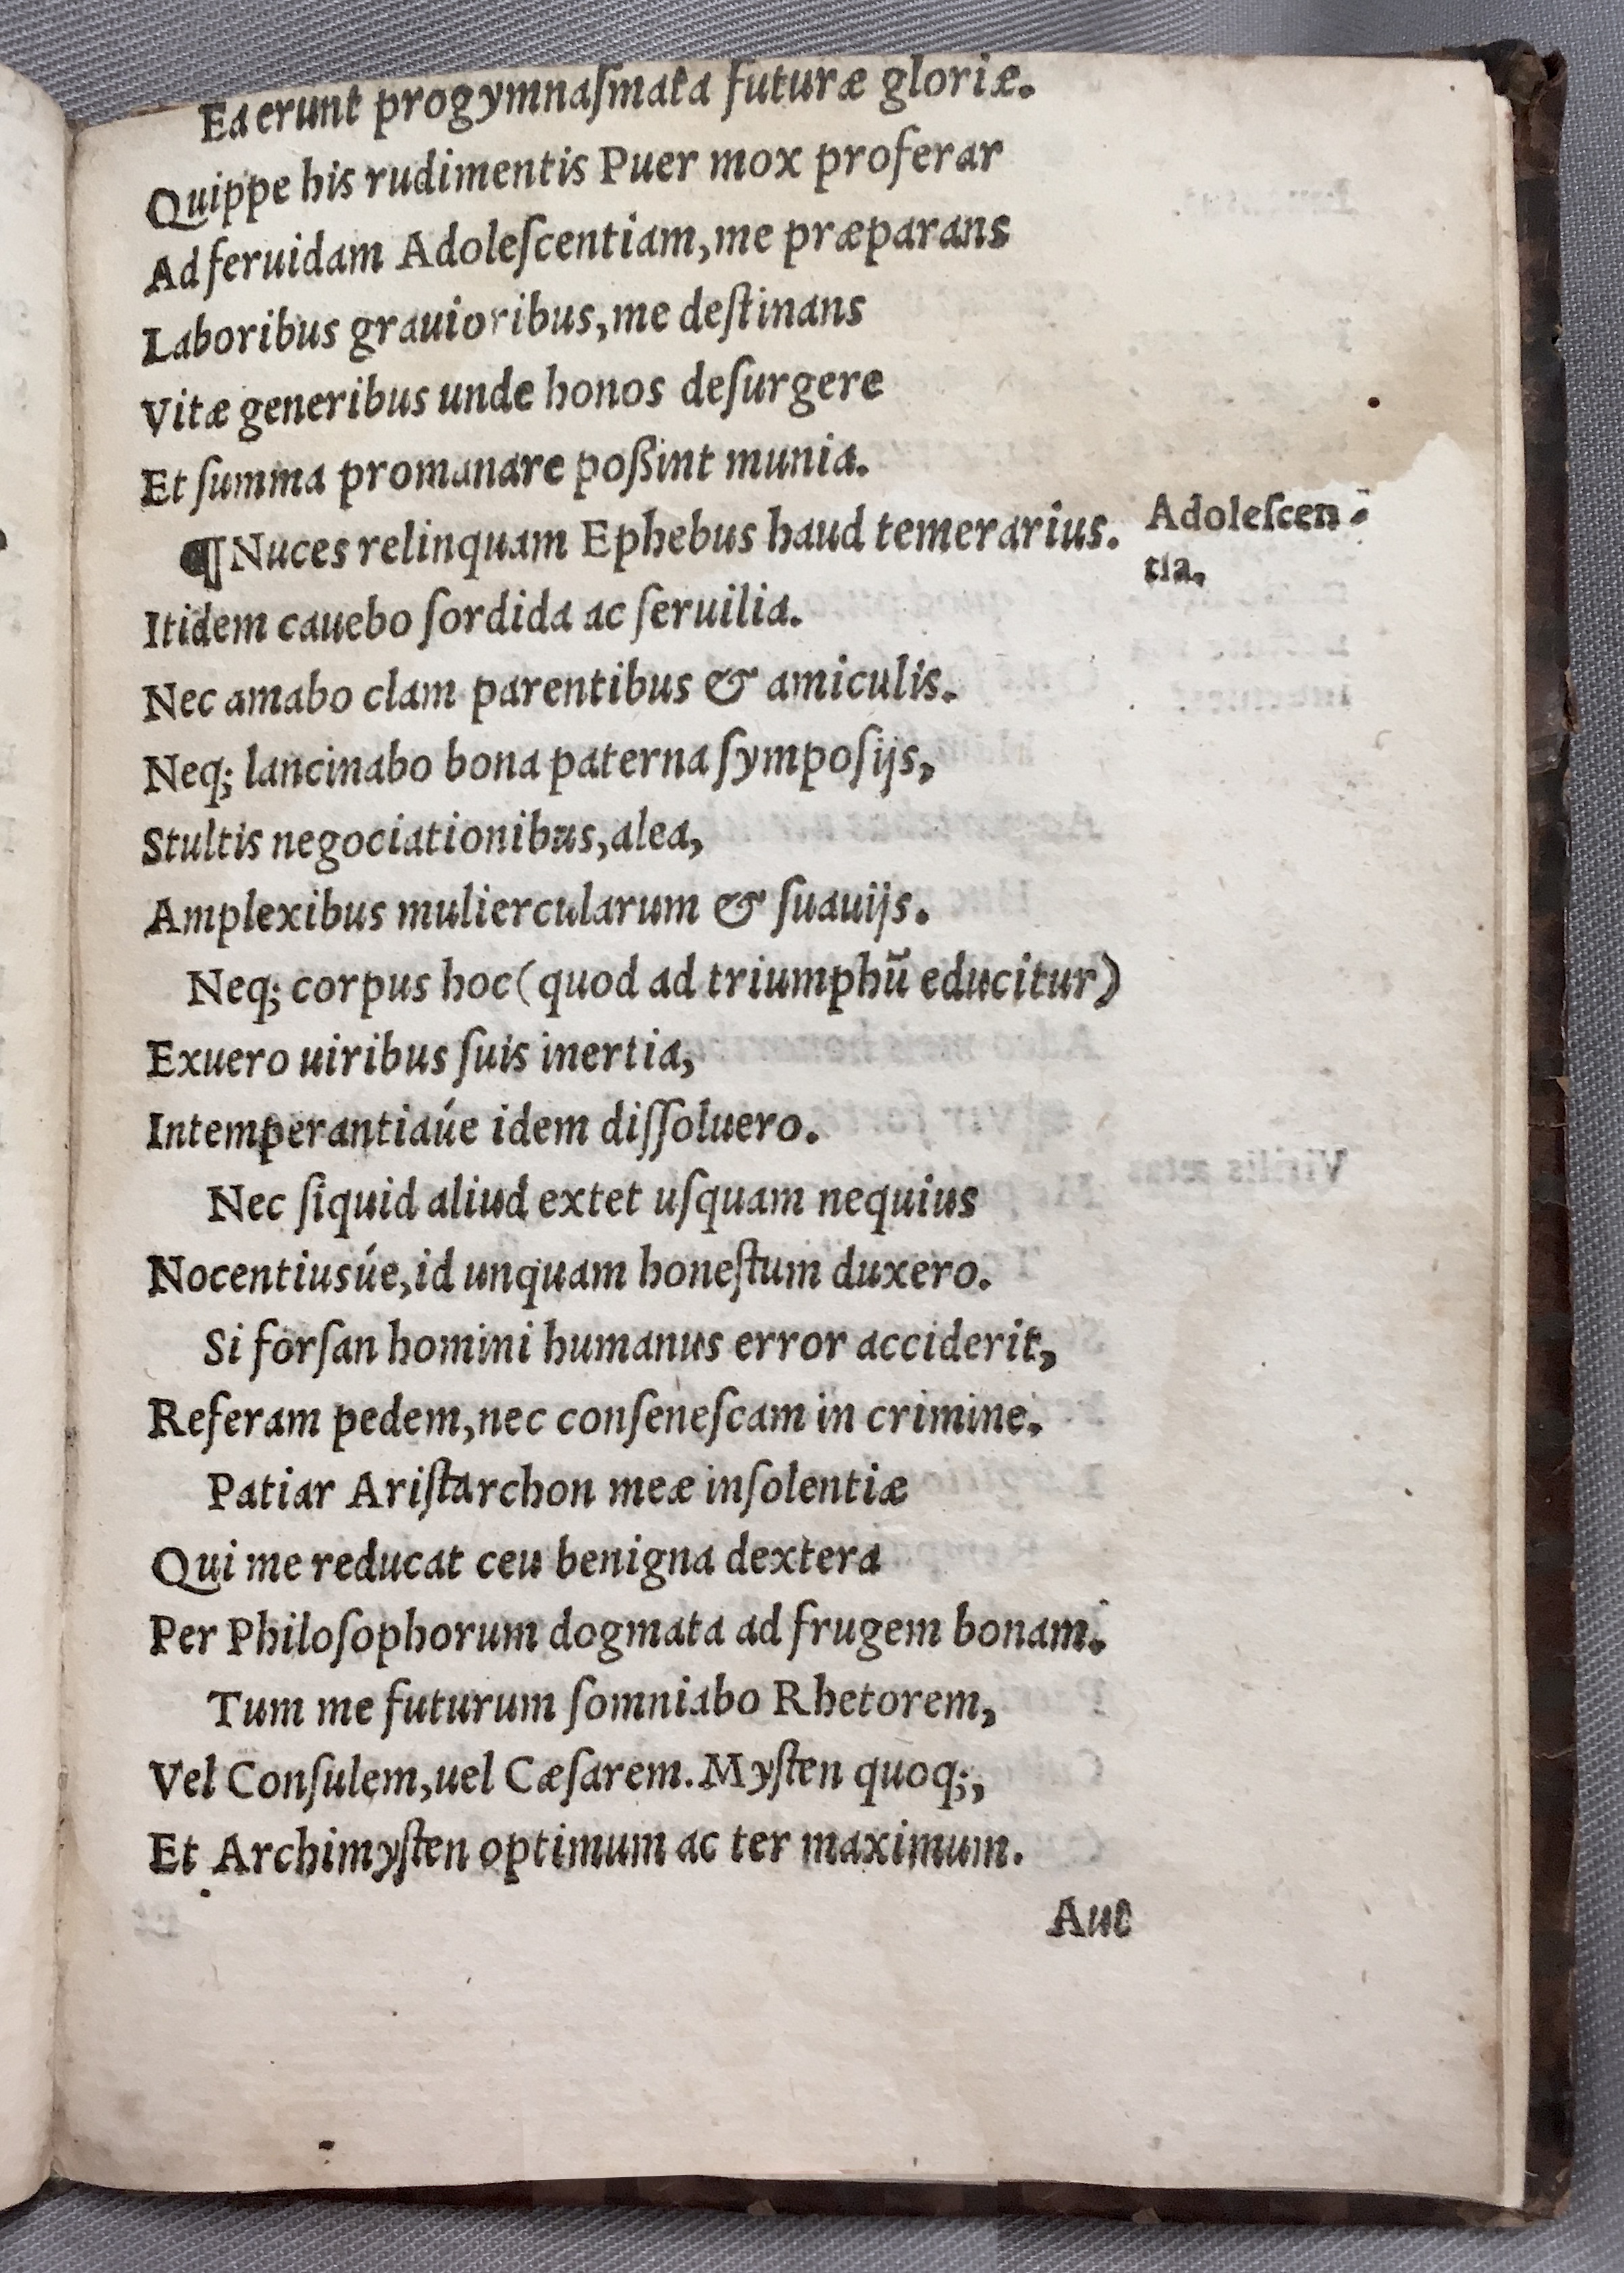 Ea erunt progymnaſmata futuræ gloriæ.
Quippe his rudimentis Puer mox proferar
Ad feruidam Adoleſcentiam, me præparans
Laboribus grauioribus, me deſtinans
Vitæ generibus unde honos deſurgere
Et ſumma promanare poßint munia.
¶ Nuces relinquam Ephebus haud temerarius.
Adoleſcen-
tia.
Itidem cauebo ſordida ac ſeruilia.
Nec amabo clam parentibus & amiculis.
Neq; lancinabo bona paterna ſympoſijs,
Stultis negociationibus, alea,
Amplexibus muliercularum & ſuauijs.
Neq; corpus hoc (quod ad triumphū educitur)
Exuero uiribus ſuis inertia,
Intemperantiaúe idem diſſoluero.
Nec ſiquid aliud extet uſquam nequius
Nocentiusúe, id unquam honeſtum duxero.
Si forſan homini humanus error acciderit,
Referam pedem, nec conſeneſcam in crimine.
Patiar Ariſtarchon meæ inſolentiæ
Qui me reducat ceu benigna dextera
Per Philoſophorum dogmata ad frugem bonam.
Tum me futurum ſomniabo Rhetorem,
Vel Conſulem, uel Cæſarem. Myſten quoq;,
Et Archimyſten optimum ac ter maximum.
Aut